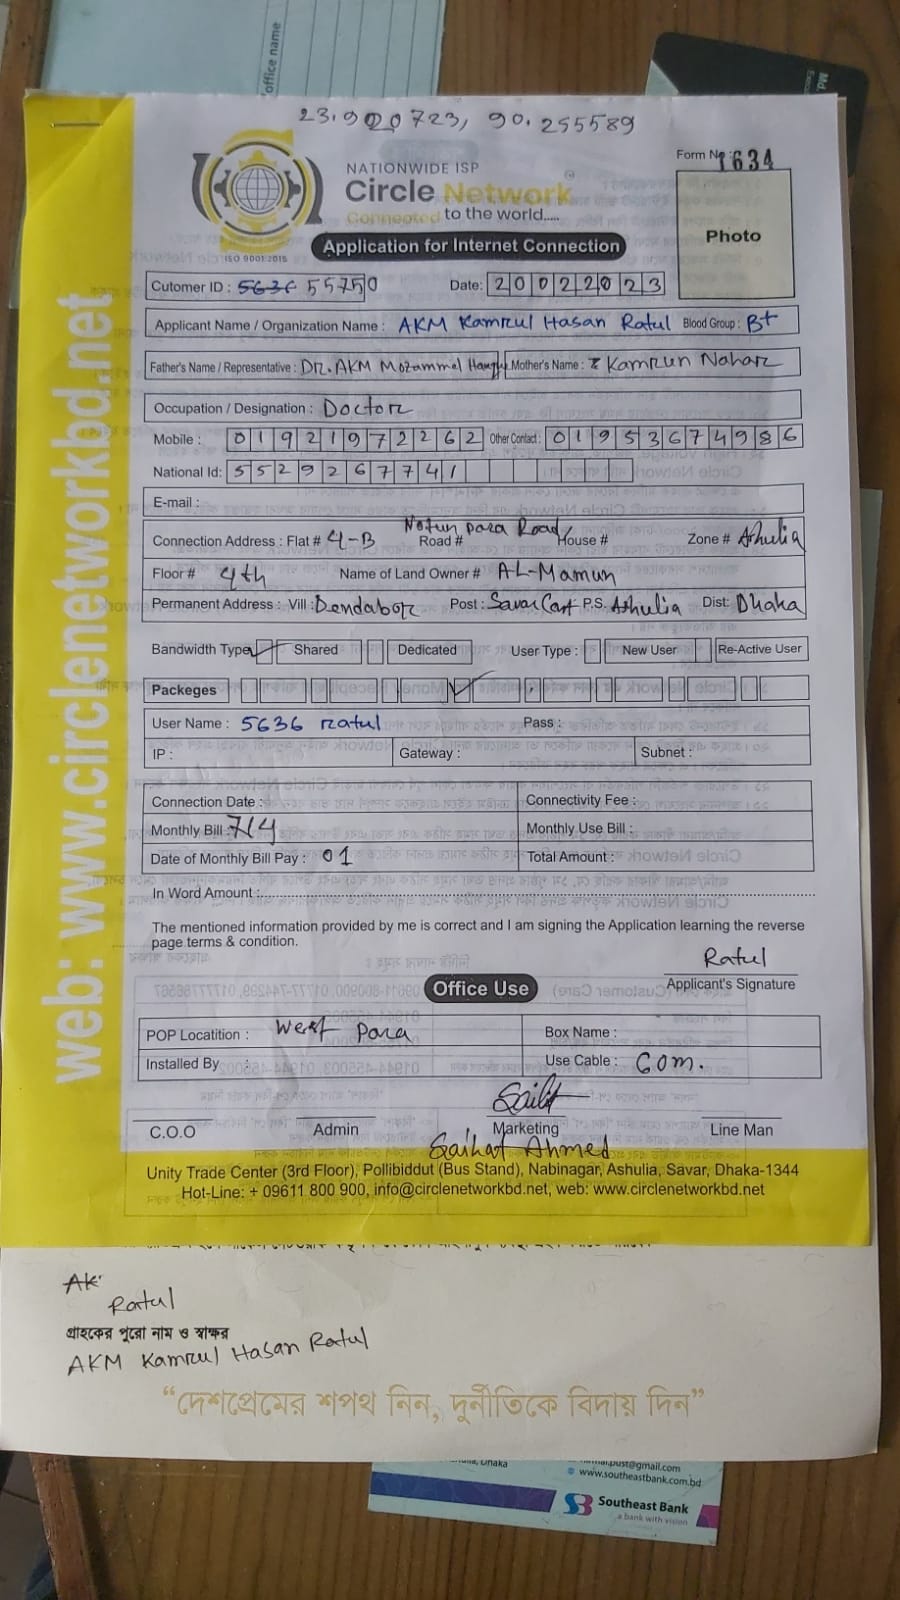 office name
23.920723, 90.255589
Form No: 1634
NATIONWIDE ISP
Circle Network
Connected to the world.....
ISO 9001:2015
Photo
Application for Internet Connection
Cutomer ID : 5636 55750 Date: 20022023
Applicant Name / Organization Name : AKM Kamrul Hasan Ratul Blood Group : B+
Father's Name / Representative : Dr. AKM Mozammel Mother's Name : Kamrun Nahar
Occupation / Designation : Doctor
Mobile : 01921972262 Other Contact : 01953674986
National Id: 5529267741
E-mail :
Connection Address : Flat # 4-B Road # Notun para Road House # Zone # Ashulia
Floor # 4th Name of Land Owner # AL-Mamun
Permanent Address : Vill : Dendabor Post : Savar Cant P.S. Ashulia Dist: Dhaka
Bandwidth Type Shared Dedicated User Type : New User Re-Active User
Packeges
User Name : 5636 ratul Pass :
IP : Gateway : Subnet :
Connection Date : Connectivity Fee :
Monthly Bill : 714 Monthly Use Bill :
Date of Monthly Bill Pay : 01 Total Amount :
In Word Amount :
The mentioned information provided by me is correct and I am signing the Application learning the reverse
page terms & condition.
Ratul
Applicant's Signature
Office Use
POP Locatition : West Para Box Name :
Installed By : Use Cable : 60m.
C.O.O Admin Marketing Line Man
Saihat Ahmed
Unity Trade Center (3rd Floor), Pollibiddut (Bus Stand), Nabinagar, Ashulia, Savar, Dhaka-1344
Hot-Line: + 09611 800 900, info@circlenetworkbd.net, web: www.circlenetworkbd.net
web: www.circlenetworkbd.net
AK
Ratul
গ্রাহকের পুরো নাম ও স্বাক্ষর
AKM Kamrul Hasan Ratul
“দেশপ্রেমের শপথ নিন, দুর্নীতিকে বিদায় দিন”
www.southeastbank.com.bd
Southeast Bank
a bank with vision